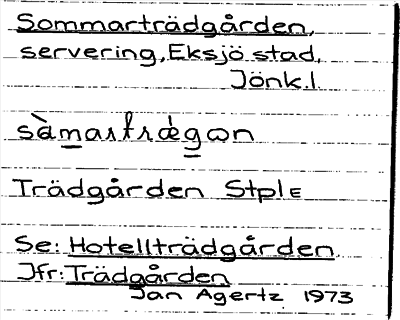 Sommarträdgården,
servering, Eksjö stad,
Jönk.l
sàmaṣtrǽgɷn
Trädgården Stpl E
Se: Hotellträdgården
Jfr: Trädgården
Jan Agertz 1973